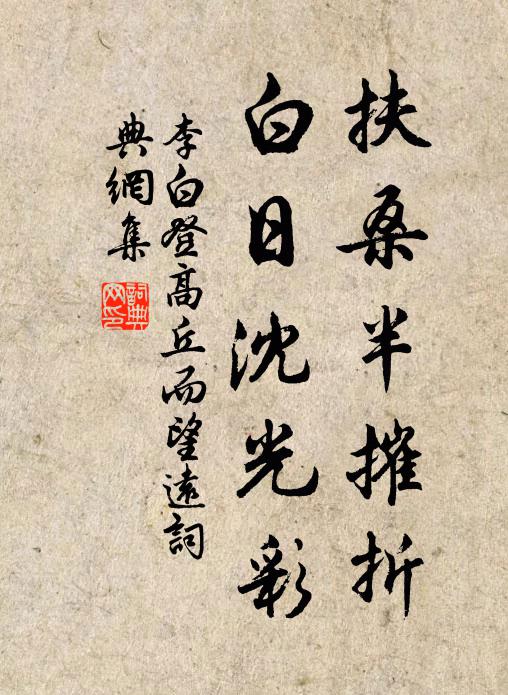 扶桑半摧折
白日沈光彩
李白登高丘而望遠詞
典網集
詞典網印